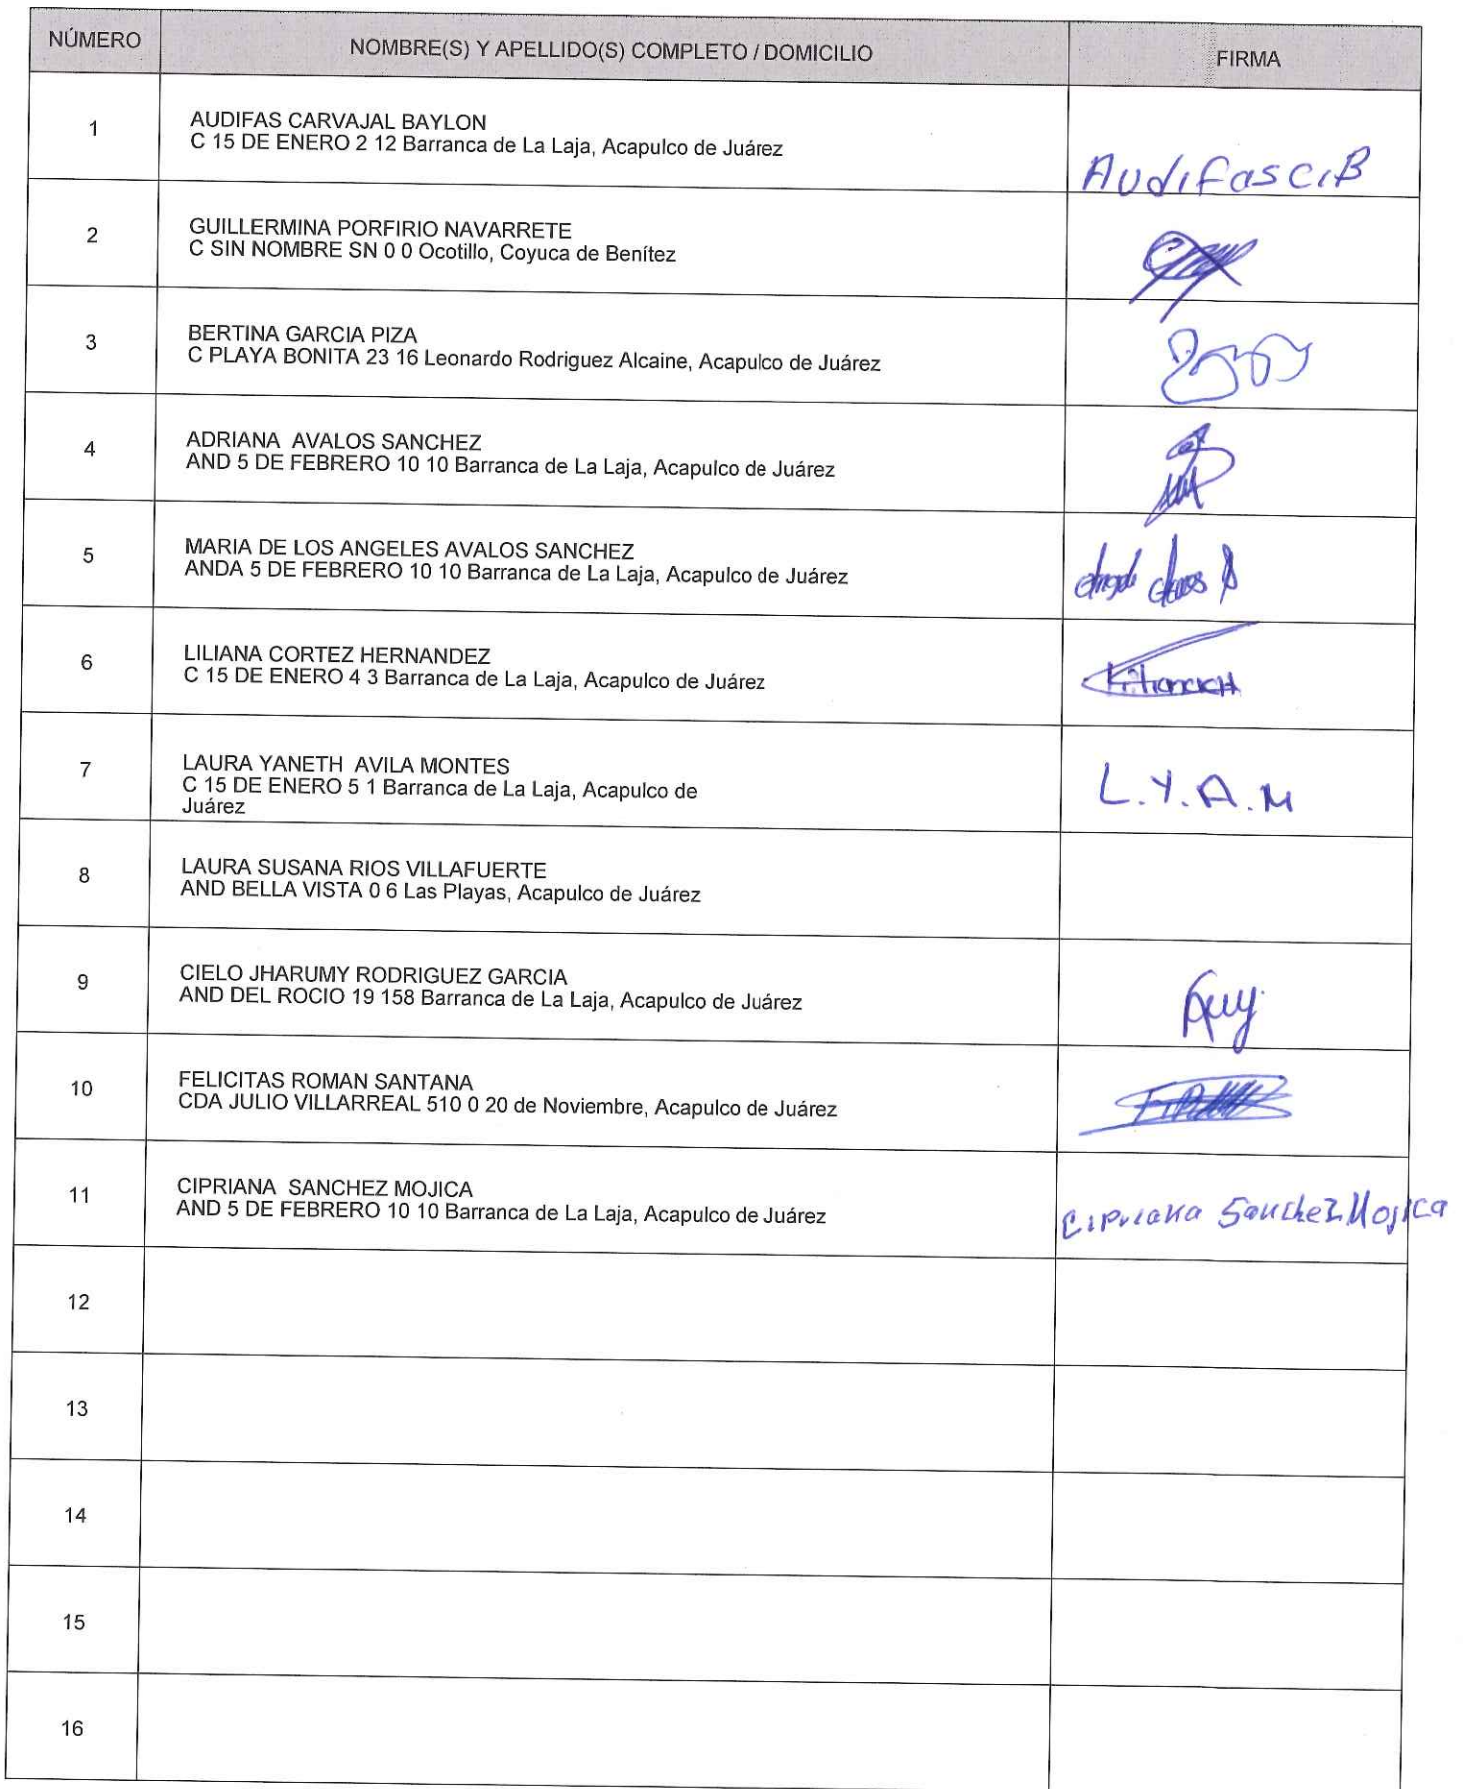 NÚMERO NOMBRE(S) Y APELLIDO(S) COMPLETO / DOMICILIO FIRMA
1 AUDIFAS CARVAJAL BAYLON
C 15 DE ENERO 2 12 Barranca de La Laja, Acapulco de Juárez
Audifas C.B
2 GUILLERMINA PORFIRIO NAVARRETE
C SIN NOMBRE SN 0 0 Ocotillo, Coyuca de Benítez
3 BERTINA GARCIA PIZA
C PLAYA BONITA 23 16 Leonardo Rodriguez Alcaine, Acapulco de Juárez
4 ADRIANA AVALOS SANCHEZ
AND 5 DE FEBRERO 10 10 Barranca de La Laja, Acapulco de Juárez
5 MARIA DE LOS ANGELES AVALOS SANCHEZ
ANDA 5 DE FEBRERO 10 10 Barranca de La Laja, Acapulco de Juárez
6 LILIANA CORTEZ HERNANDEZ
C 15 DE ENERO 4 3 Barranca de La Laja, Acapulco de Juárez
7 LAURA YANETH AVILA MONTES
C 15 DE ENERO 5 1 Barranca de La Laja, Acapulco de
Juárez
L.Y.A.M
8 LAURA SUSANA RIOS VILLAFUERTE
AND BELLA VISTA 0 6 Las Playas, Acapulco de Juárez
9 CIELO JHARUMY RODRIGUEZ GARCIA
AND DEL ROCIO 19 158 Barranca de La Laja, Acapulco de Juárez
10 FELICITAS ROMAN SANTANA
CDA JULIO VILLARREAL 510 0 20 de Noviembre, Acapulco de Juárez
11 CIPRIANA SANCHEZ MOJICA
AND 5 DE FEBRERO 10 10 Barranca de La Laja, Acapulco de Juárez
Cipriana Sanchez Mojica
12
13
14
15
16